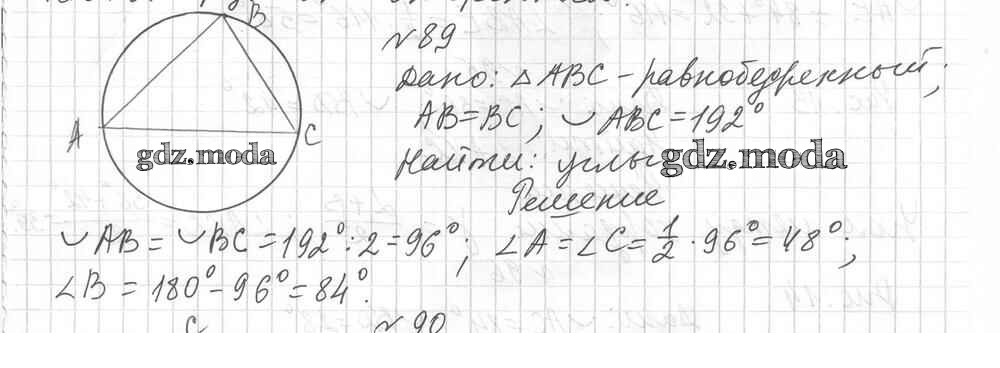 B
A
C
gdz.moda
N89
Дано: △ABC – равнобедренный;
AB=BC; ◡ABC=192°
Найти: углы
gdz.moda
Решение
◡AB = ◡BC = 192°:2 = 96°; ∠A = ∠C = 1/2 · 96° = 48°;
∠B = 180° – 96° = 84°.
N90